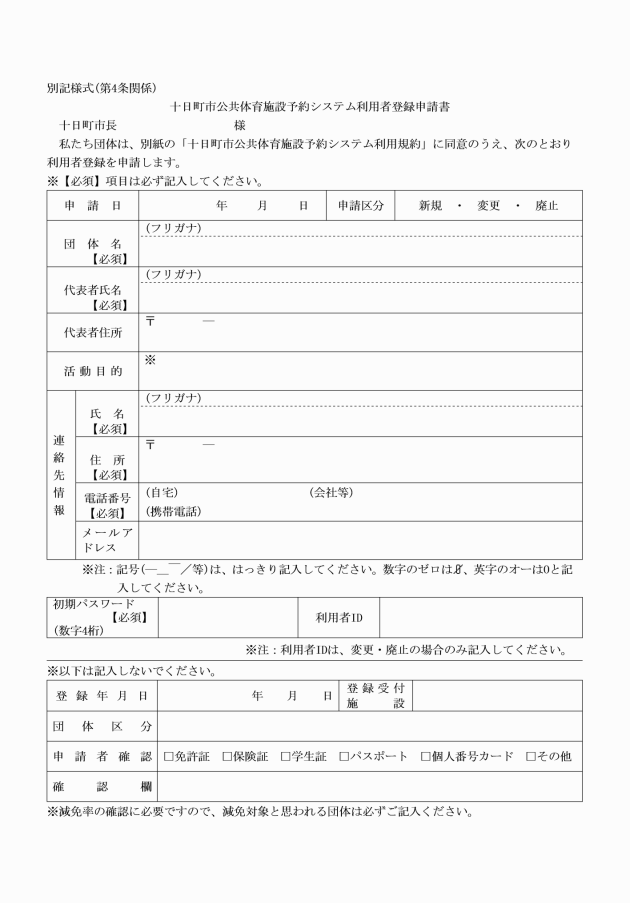 別記様式(第4条関係)
十日町市公共体育施設予約システム利用者登録申請書
十日町市長 様
私たち団体は、別紙の「十日町市公共体育施設予約システム利用規約」に同意のうえ、次のとおり
利用者登録を申請します。
※【必須】項目は必ず記入してください。
申請日 年 月 日 申請区分 新規 ・ 変更 ・ 廃止
(フリガナ)
団体名
【必須】
(フリガナ)
代表者氏名
【必須】
〒 ―
代表者住所
※
活動目的
連絡先情報
(フリガナ)
氏名
【必須】
〒 ―
住所
【必須】
電話番号
【必須】
(自宅) (会社等)
(携帯電話)
メールア
ドレス
※注:記号(―＿￣／等)は、はっきり記入してください。数字のゼロは0̸、英字のオーはOと記
入してください。
初期パスワード
【必須】
(数字4桁)
利用者ID
※注:利用者IDは、変更・廃止の場合のみ記入してください。
※以下は記入しないでください。
登録年月日 年 月 日
登録受付
施設
団体区分
申請者確認 □免許証 □保険証 □学生証 □パスポート □個人番号カード □その他
確認欄
※減免率の確認に必要ですので、減免対象と思われる団体は必ずご記入ください。